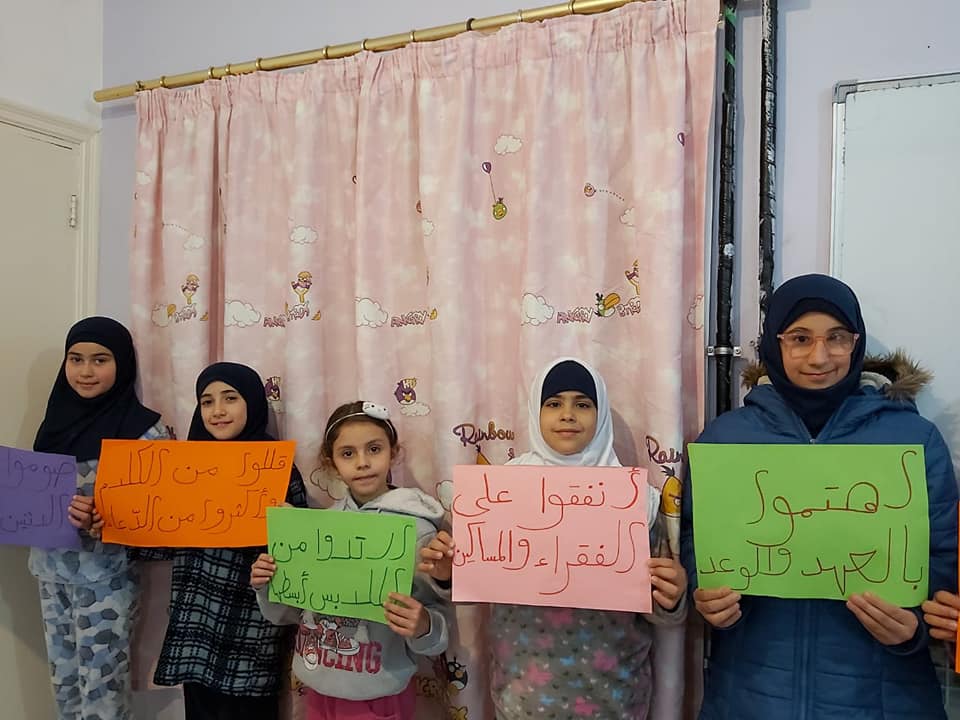 اهتموا
بالعهد والوعد
أنفقوا على
الفقراء والمساكين
ارتدوا من
الملابس أبسطها
قللوا من الكلام
وأكثروا من الدّعاء
صوموا
الاثنين
ANGRY
ANGRY
ANGRY BIRDS
Rainbow